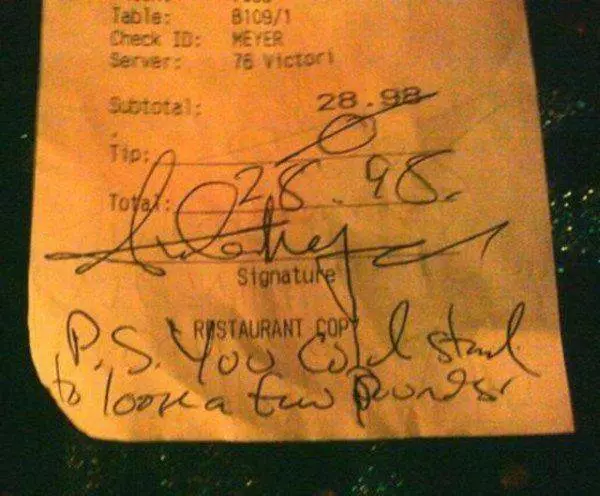 Table: B109/1
Check ID: MEYER
Server: 76 Victori
Subtotal: 28.98
Tip: 0
Total: 28.98.
Signature
RESTAURANT COPY
P.S. You could stand
to loose a few pounds.